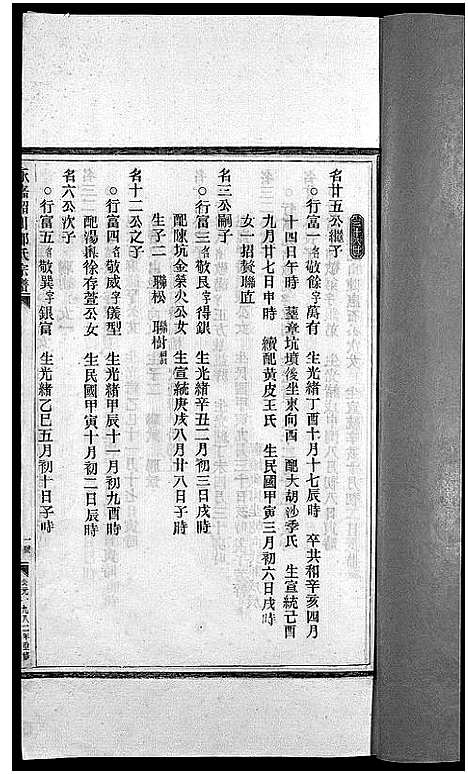 名廿五公繼子
○行富一名敬餘字萬有 生光緒丁酉十月十七辰時 卒共和辛亥四月
十四日午時 塟章坑墳後坐東向酉 配大胡沙季氏 生宣統己酉
九月廿七日申時 續配黃皮王氏 生民國甲寅三月初六日戌時
女一招贅聯直
名三公嗣子
○行富三名敬艮字得銀 生光緒辛丑二月初三日戌時
配陳坑金榮尖公女 生宣統庚戌八月廿八日子時
生子二 聯松 聯樹
名十二公之子
○行富四名敬威字儀型 生光緒甲辰十一月初九酉時
配湯與徐存萱公女 生民國甲寅十月初二日辰時
名六公次子
○行富五名敬巽字銀富 生光緒乙巳五月初十日子時
一九八二年